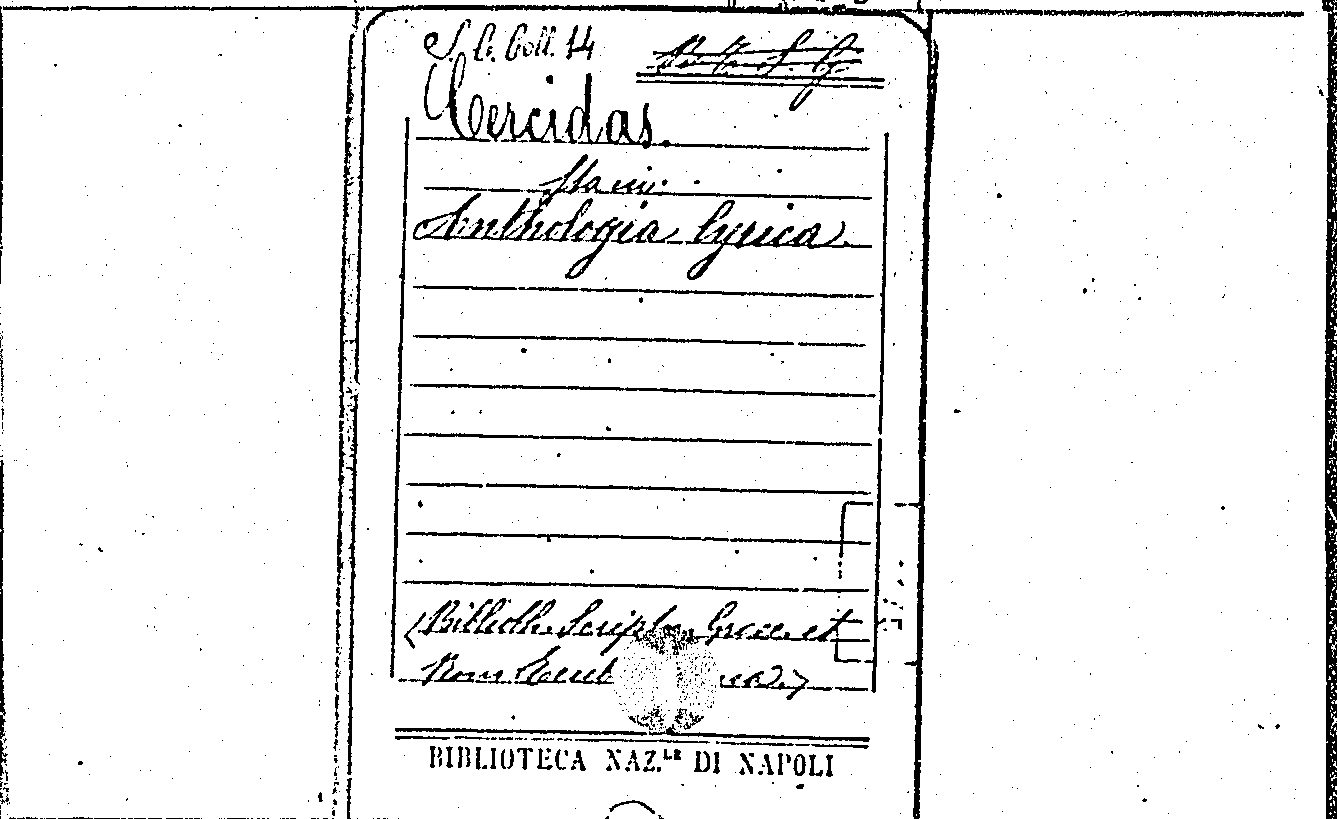 S. C. Coll. 14
Cercidas.
Anthologia lyrica.
(Biblioth. Script. Graec. et
Rom.
BIBLIOTECA NAZ.LE DI NAPOLI